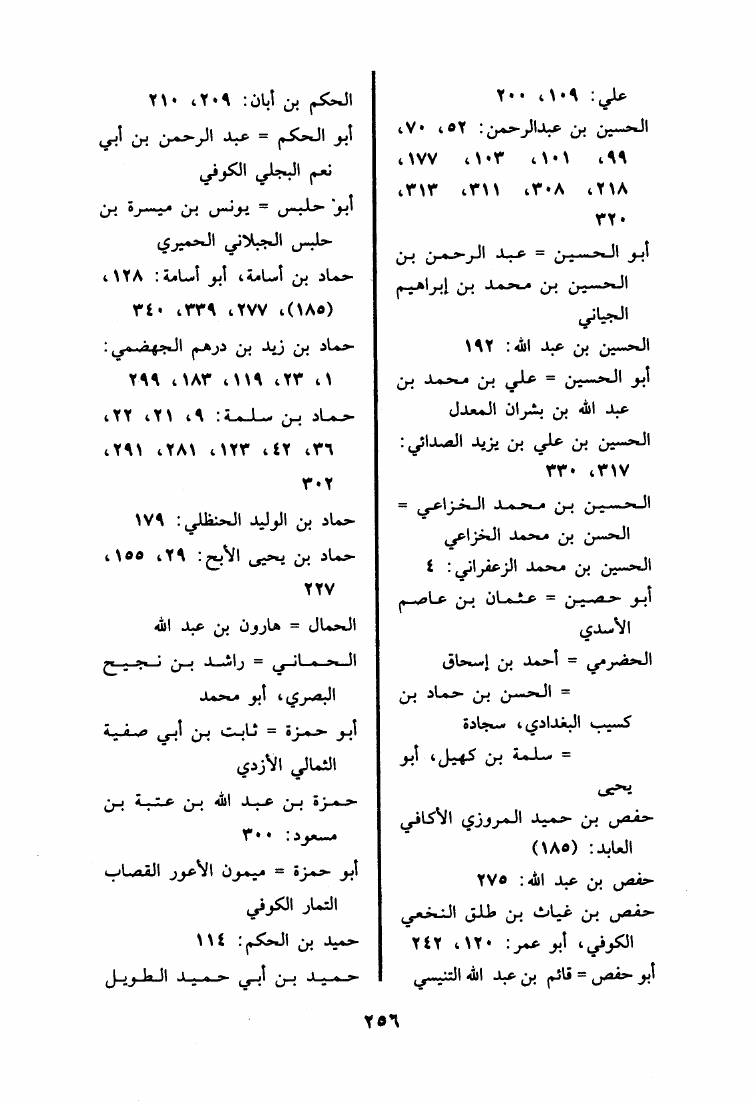 علي: ١٠٩، ٢٠٠
الحسين بن عبدالرحمن: ٥٢، ٧٠،
٩٩، ١٠١، ١٠٣، ١٧٧،
٢١٨، ٣٠٨، ٣١١، ٣١٣،
٣٢٠
أبو الحسين = عبد الرحمن بن
الحسين بن محمد بن إبراهيم
الجياني
الحسين بن عبد الله: ١٩٢
أبو الحسين = علي بن محمد بن
عبد الله بن بشران المعدل
الحسين بن علي بن يزيد الصدائي:
٣١٧، ٣٣٠
الحسين بن محمد الخزاعي =
الحسن بن محمد الخزاعي
الحسين بن محمد الزعفراني: ٤
أبو حصين = عثمان بن عاصم
الأسدي
الحضرمي = أحمد بن إسحاق
= الحسن بن حماد بن
كسيب البغدادي، سجادة
= سلمة بن كهيل، أبو
يحيى
حفص بن حميد المروزي الأكافي
العابد: (١٨٥)
حفص بن عبد الله: ٢٧٥
حفص بن غياث بن طلق النخعي
الكوفي، أبو عمر: ١٢٠، ٢٤٢
أبو حفص = قائم بن عبد الله التنيسي
الحكم بن أبان: ٢٠٩، ٢١٠
أبو الحكم = عبد الرحمن بن أبي
نعم البجلي الكوفي
أبو حلبس = يونس بن ميسرة بن
حلبس الجبلاني الحميري
حماد بن أسامة، أبو أسامة: ١٢٨،
(١٨٥)، ٢٧٧، ٣٣٩، ٣٤٠
حماد بن زيد بن درهم الجهضمي:
١، ٢٣، ١١٩، ١٨٣، ٢٩٩
حماد بن سلمة: ٩، ٢١، ٢٢،
٣٦، ٤٢، ١٢٣، ٢٨١، ٢٩١،
٣٠٢
حماد بن الوليد الحنظلي: ١٧٩
حماد بن يحيى الأبح: ٢٩، ١٥٥،
٢٢٧
الحمال = هارون بن عبد الله
الحماني = راشد بن نجيح
البصري، أبو محمد
أبو حمزة = ثابت بن أبي صفية
الثمالي الأزدي
حمزة بن عبد الله بن عتبة بن
مسعود: ٣٠٠
أبو حمزة = ميمون الأعور القصاب
التمار الكوفي
حميد بن الحكم: ١١٤
حميد بن أبي حميد الطويل
٢٥٦